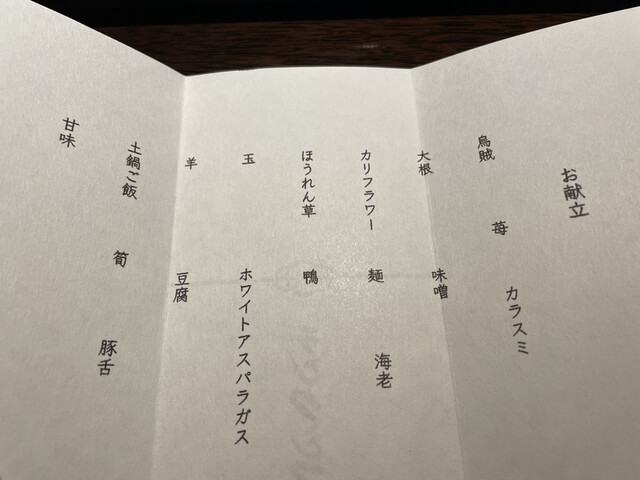 お献立
烏賊　苺　カラスミ
大根　味噌
カリフラワー　麺　海老
ほうれん草　鴨
玉　ホワイトアスパラガス
羊　豆腐
土鍋ご飯　筍　豚舌
甘味